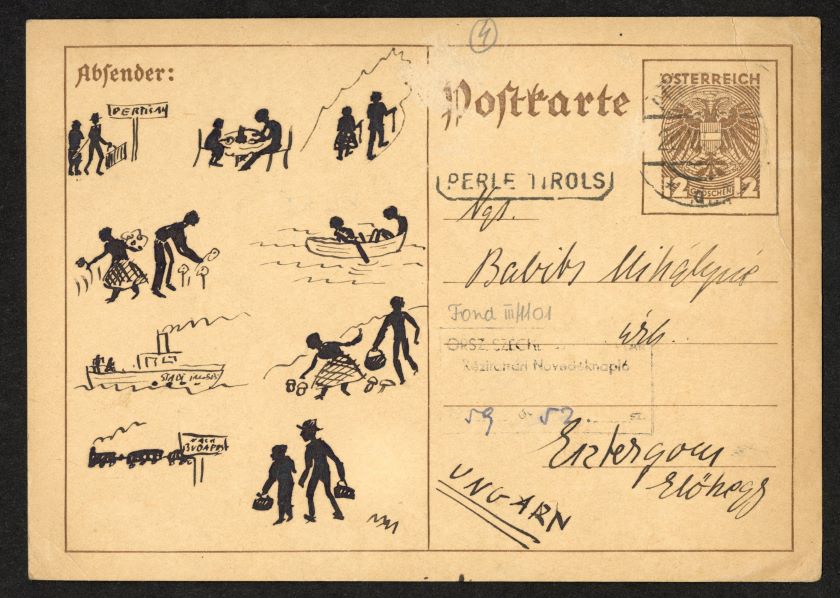 4
Absender:
Postkarte
ÖSTERREICH
12 GROSCHEN 12
PERTISAU
PERLE TIROLS
Ngs.
Babits Mihályné
Fond III/1101
úrh.
ORSZ. SZÉCH
Kézirattári Növedéknapló
59 52
STADT INNSB
NACH
BUDAPEST
Esztergom
Előhegy
UNGARN